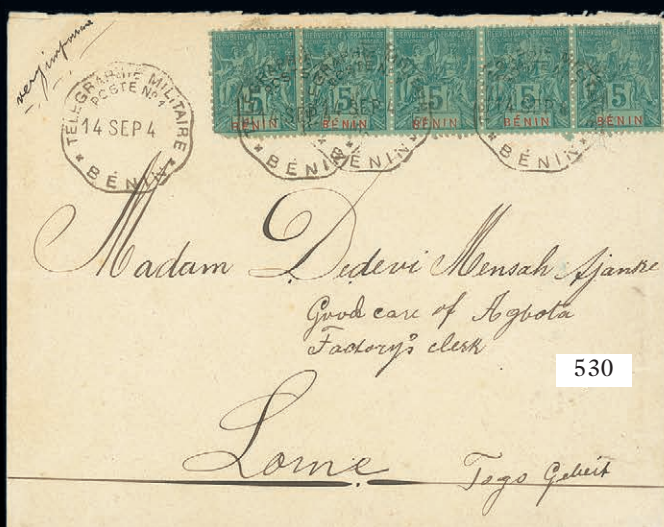 very
TÉLÉGRAPHIE MILITAIRE
POSTE No 1
14 SEP 4
* BÉNIN *
RÉPUBLIQUE FRANÇAISE
5
BÉNIN
RÉPUBLIQUE FRANÇAISE
5
BÉNIN
RÉPUBLIQUE FRANÇAISE
5
BÉNIN
RÉPUBLIQUE FRANÇAISE
5
BÉNIN
RÉPUBLIQUE FRANÇAISE
5
BÉNIN
14 SEP
BÉNIN
BÉNIN
14 SEP 4
* BÉNIN
Madam Dedevi Mensah Ajanke
Good care of Agbota
Factory's clerk
530
Lome
Togo Gebeit